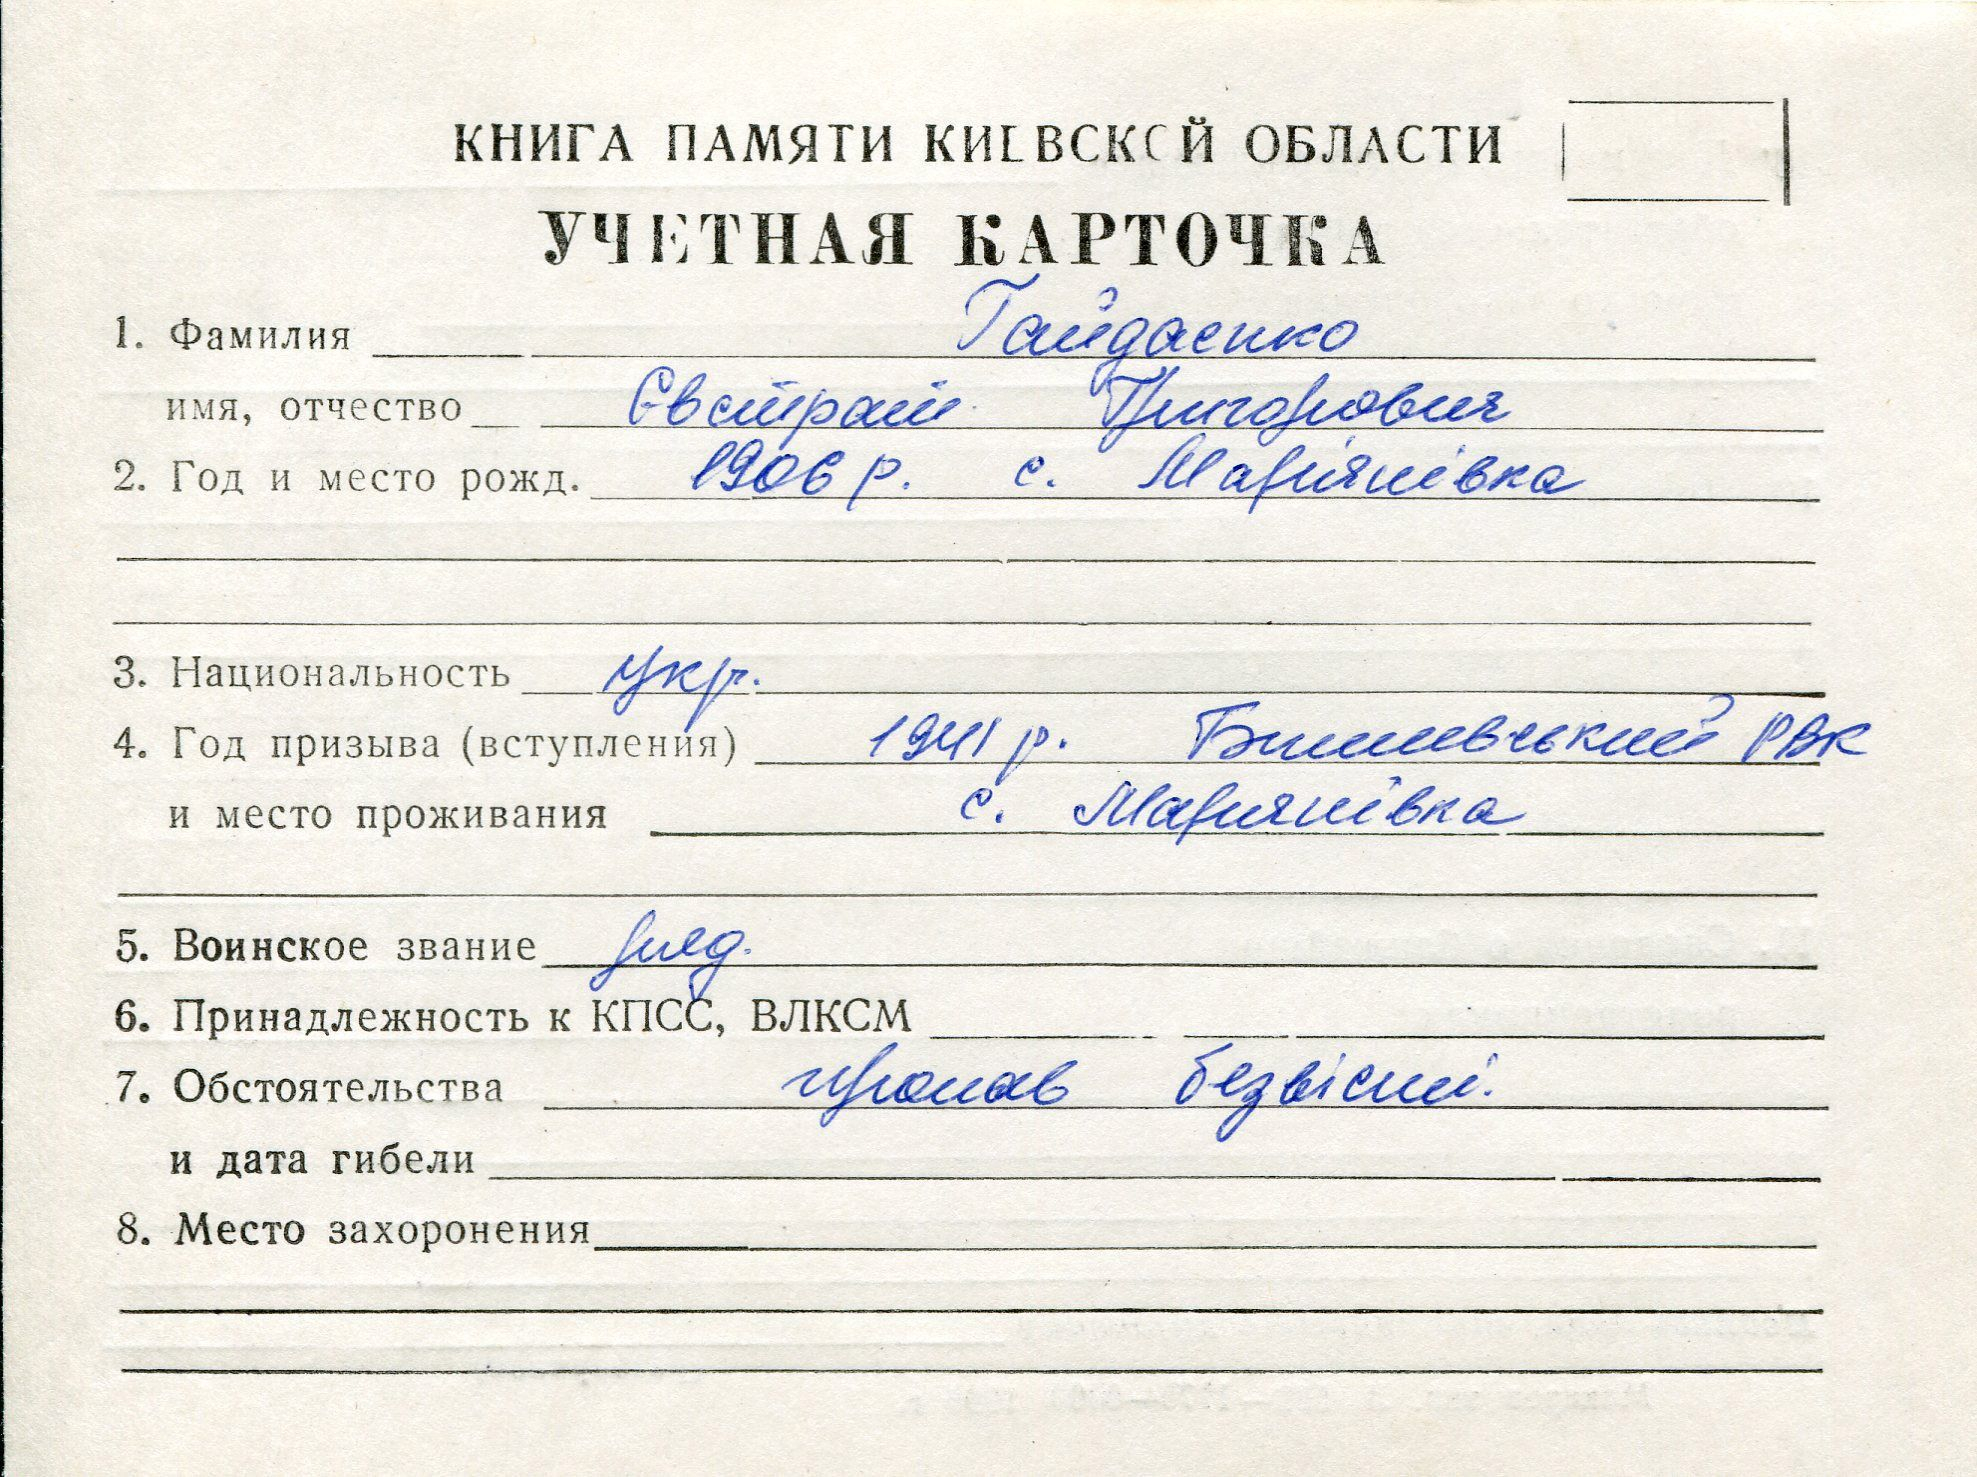 КНИГА ПАМЯТИ КИЕВСКОЙ ОБЛАСТИ
УЧЕТНАЯ КАРТОЧКА
1. Фамилия Гайдаенко
имя, отчество Євстрат Григорович
2. Год и место рожд. 1906 р. с. Мар'янівка
3. Национальность укр.
4. Год призыва (вступления) 1941 р. Бишевський РВК
и место проживания с. Мар'янівка
5. Воинское звание ряд.
6. Принадлежность к КПСС, ВЛКСМ
7. Обстоятельства пропав безвісті.
и дата гибели
8. Место захоронения